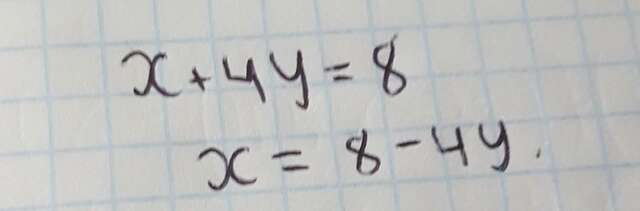 x+4y=8
x=8-4y.